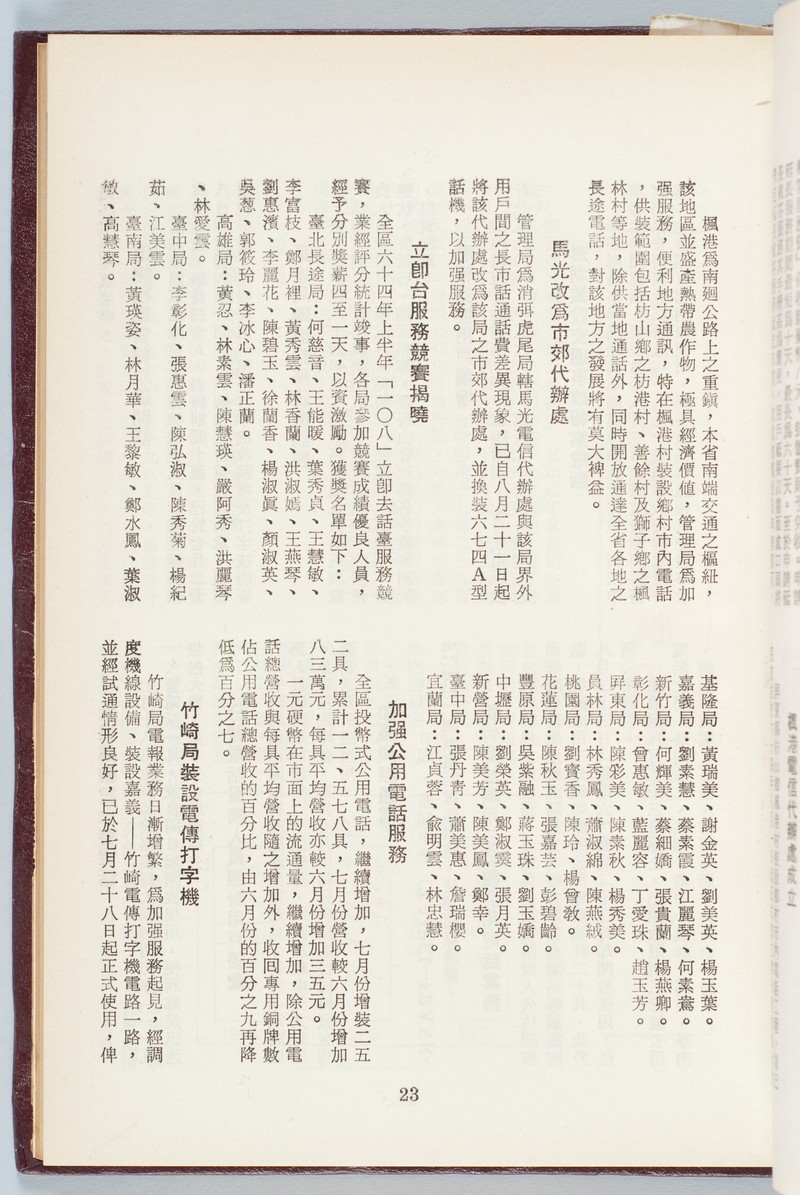 楓港爲南廻公路上之重鎭，本省南端交通之樞紐，
該地區並盛產熱帶農作物，極具經濟價值，管理局爲加
强服務，便利地方通訊，特在楓港村裝設鄉村市內電話
，供裝範圍包括枋山鄉之枋港村、善餘村及獅子鄉之楓
林村等地，除供當地通話外，同時開放通達全省各地之
長途電話，對該地方之發展將有莫大裨益。
馬光改爲市郊代辦處
管理局爲消弭虎尾局轄馬光電信代辦處與該局界外
用戶間之長市話通話費差異現象，已自八月二十一日起
將該代辦處改爲該局之市郊代辦處，並換裝六七四A型
話機，以加强服務。
立卽台服務競賽揭曉
全區六十四年上半年「一〇八」立卽去話臺服務競
賽，業經評分統計竣事，各局參加競賽成績優良人員，
經予分別獎薪四至一天，以資激勵。獲獎名單如下：
臺北長途局：何慈音、王能暖、葉秀貞、王慧敏、
李富枝、鄭月裡、黃秀雲、林香蘭、洪淑嫣、王燕琴、
劉惠濱、李麗花、陳碧玉、徐蘭香、楊淑眞、顏淑英、
吳葱、郭筱玲、李冰心、潘正蘭。
高雄局：黃忍、林素雲、陳慧瑛、嚴阿秀、洪麗琴
、林愛雲。
臺中局：李彰化、張惠雲、陳弘淑、陳秀菊、楊紀
茹、江美雲。
臺南局：黃瑛姿、林月華、王黎敏、鄭水鳳、葉淑
敏、高慧琴。
基隆局：黃瑞美、謝金英、劉美英、楊玉葉。
嘉義局：劉素慧、蔡素霞、江麗琴、何素鴦。
新竹局：何輝美、蔡細嬌、張貴蘭、楊燕卿。
彰化局：曾惠敏、藍麗容、丁愛珠、趙玉芳。
屛東局：陳彩美、陳素秋、楊秀美。
員林局：林秀鳳、蕭淑綿、陳燕絨。
桃園局：劉寶香、陳玲、楊曾敎。
花蓮局：陳秋玉、張嘉芸、彭碧齡。
豐原局：吳紫融、蔣玉珠、劉玉嬌。
中壢局：劉榮英、鄭淑霙、張月英。
新營局：陳美芳、陳美鳳、鄭幸。
臺中局：張丹靑、蕭美惠、詹瑞櫻。
宜蘭局：江貞蓉、兪明雲、林忠慧。
加强公用電話服務
全區投幣式公用電話，繼續增加，七月份增裝二五
二具，累計一二、五七八具，七月份營收較六月份增加
八三萬元，每具平均營收亦較六月份增加三五元。
一元硬幣在市面上的流通量，繼續增加，除公用電
話總營收與每具平均營收隨之增加外，收回專用銅牌數
佔公用電話總營收的百分比，由六月份的百分之九再降
低爲百分之七。
竹崎局裝設電傳打字機
竹崎局電報業務日漸增繁，爲加强服務起見，經調
度機線設備、裝設嘉義——竹崎電傳打字機電路一路，
並經試通情形良好，已於七月二十八日起正式使用，俾
23